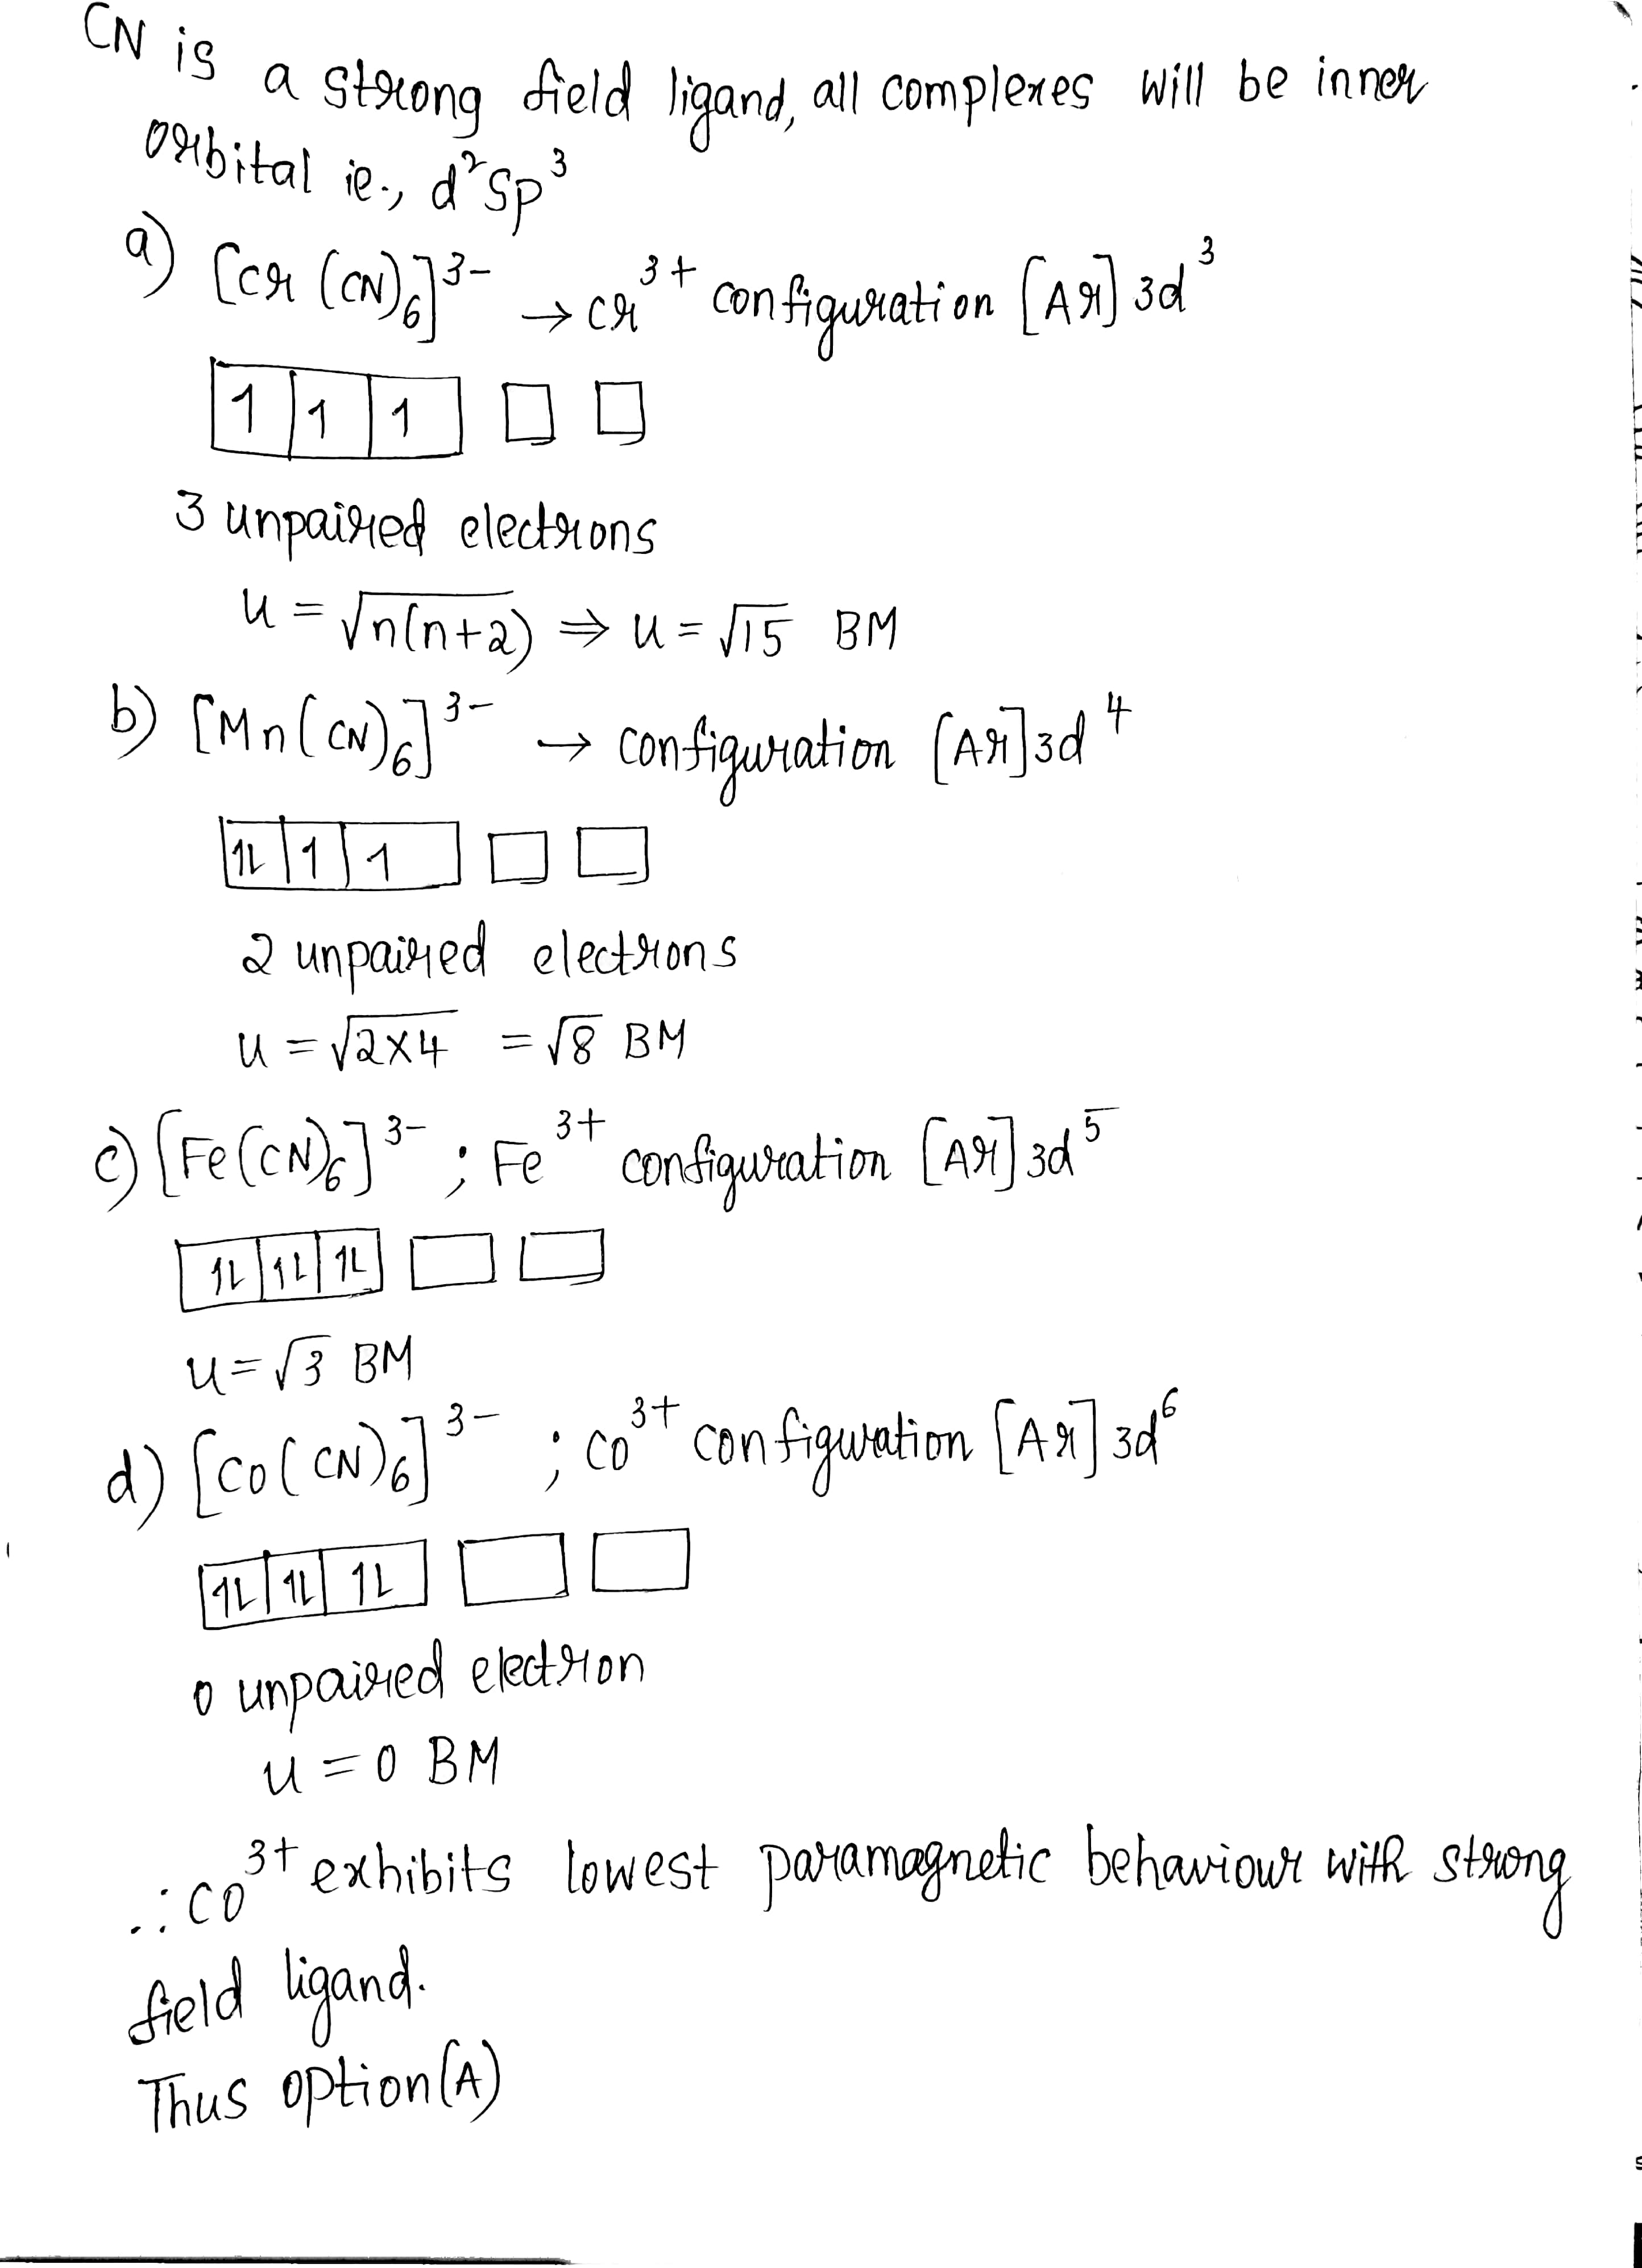 CN is a strong field ligand, all complexes will be inner
orbital ie., d²sp³
a) [Cr(CN)₆]³⁻ → Cr³⁺ configuration [Ar] 3d³
1 1 1
3 unpaired electrons
u = √n(n+2) ⇒ u = √15 BM
b) [Mn(CN)₆]³⁻ → configuration [Ar]3d⁴
1L 1 1
2 unpaired electrons
u = √2×4 = √8 BM
c) [Fe(CN)₆]³⁻ ; Fe³⁺ configuration [Ar] 3d⁵
1L 1L 1L
u = √3 BM
d) [Co(CN)₆]³⁻ ; Co³⁺ configuration [Ar] 3d⁶
1L 1L 1L
0 unpaired electron
u = 0 BM
∴ Co³⁺ exhibits lowest paramagnetic behaviour with strong
field ligand.
Thus option(A)